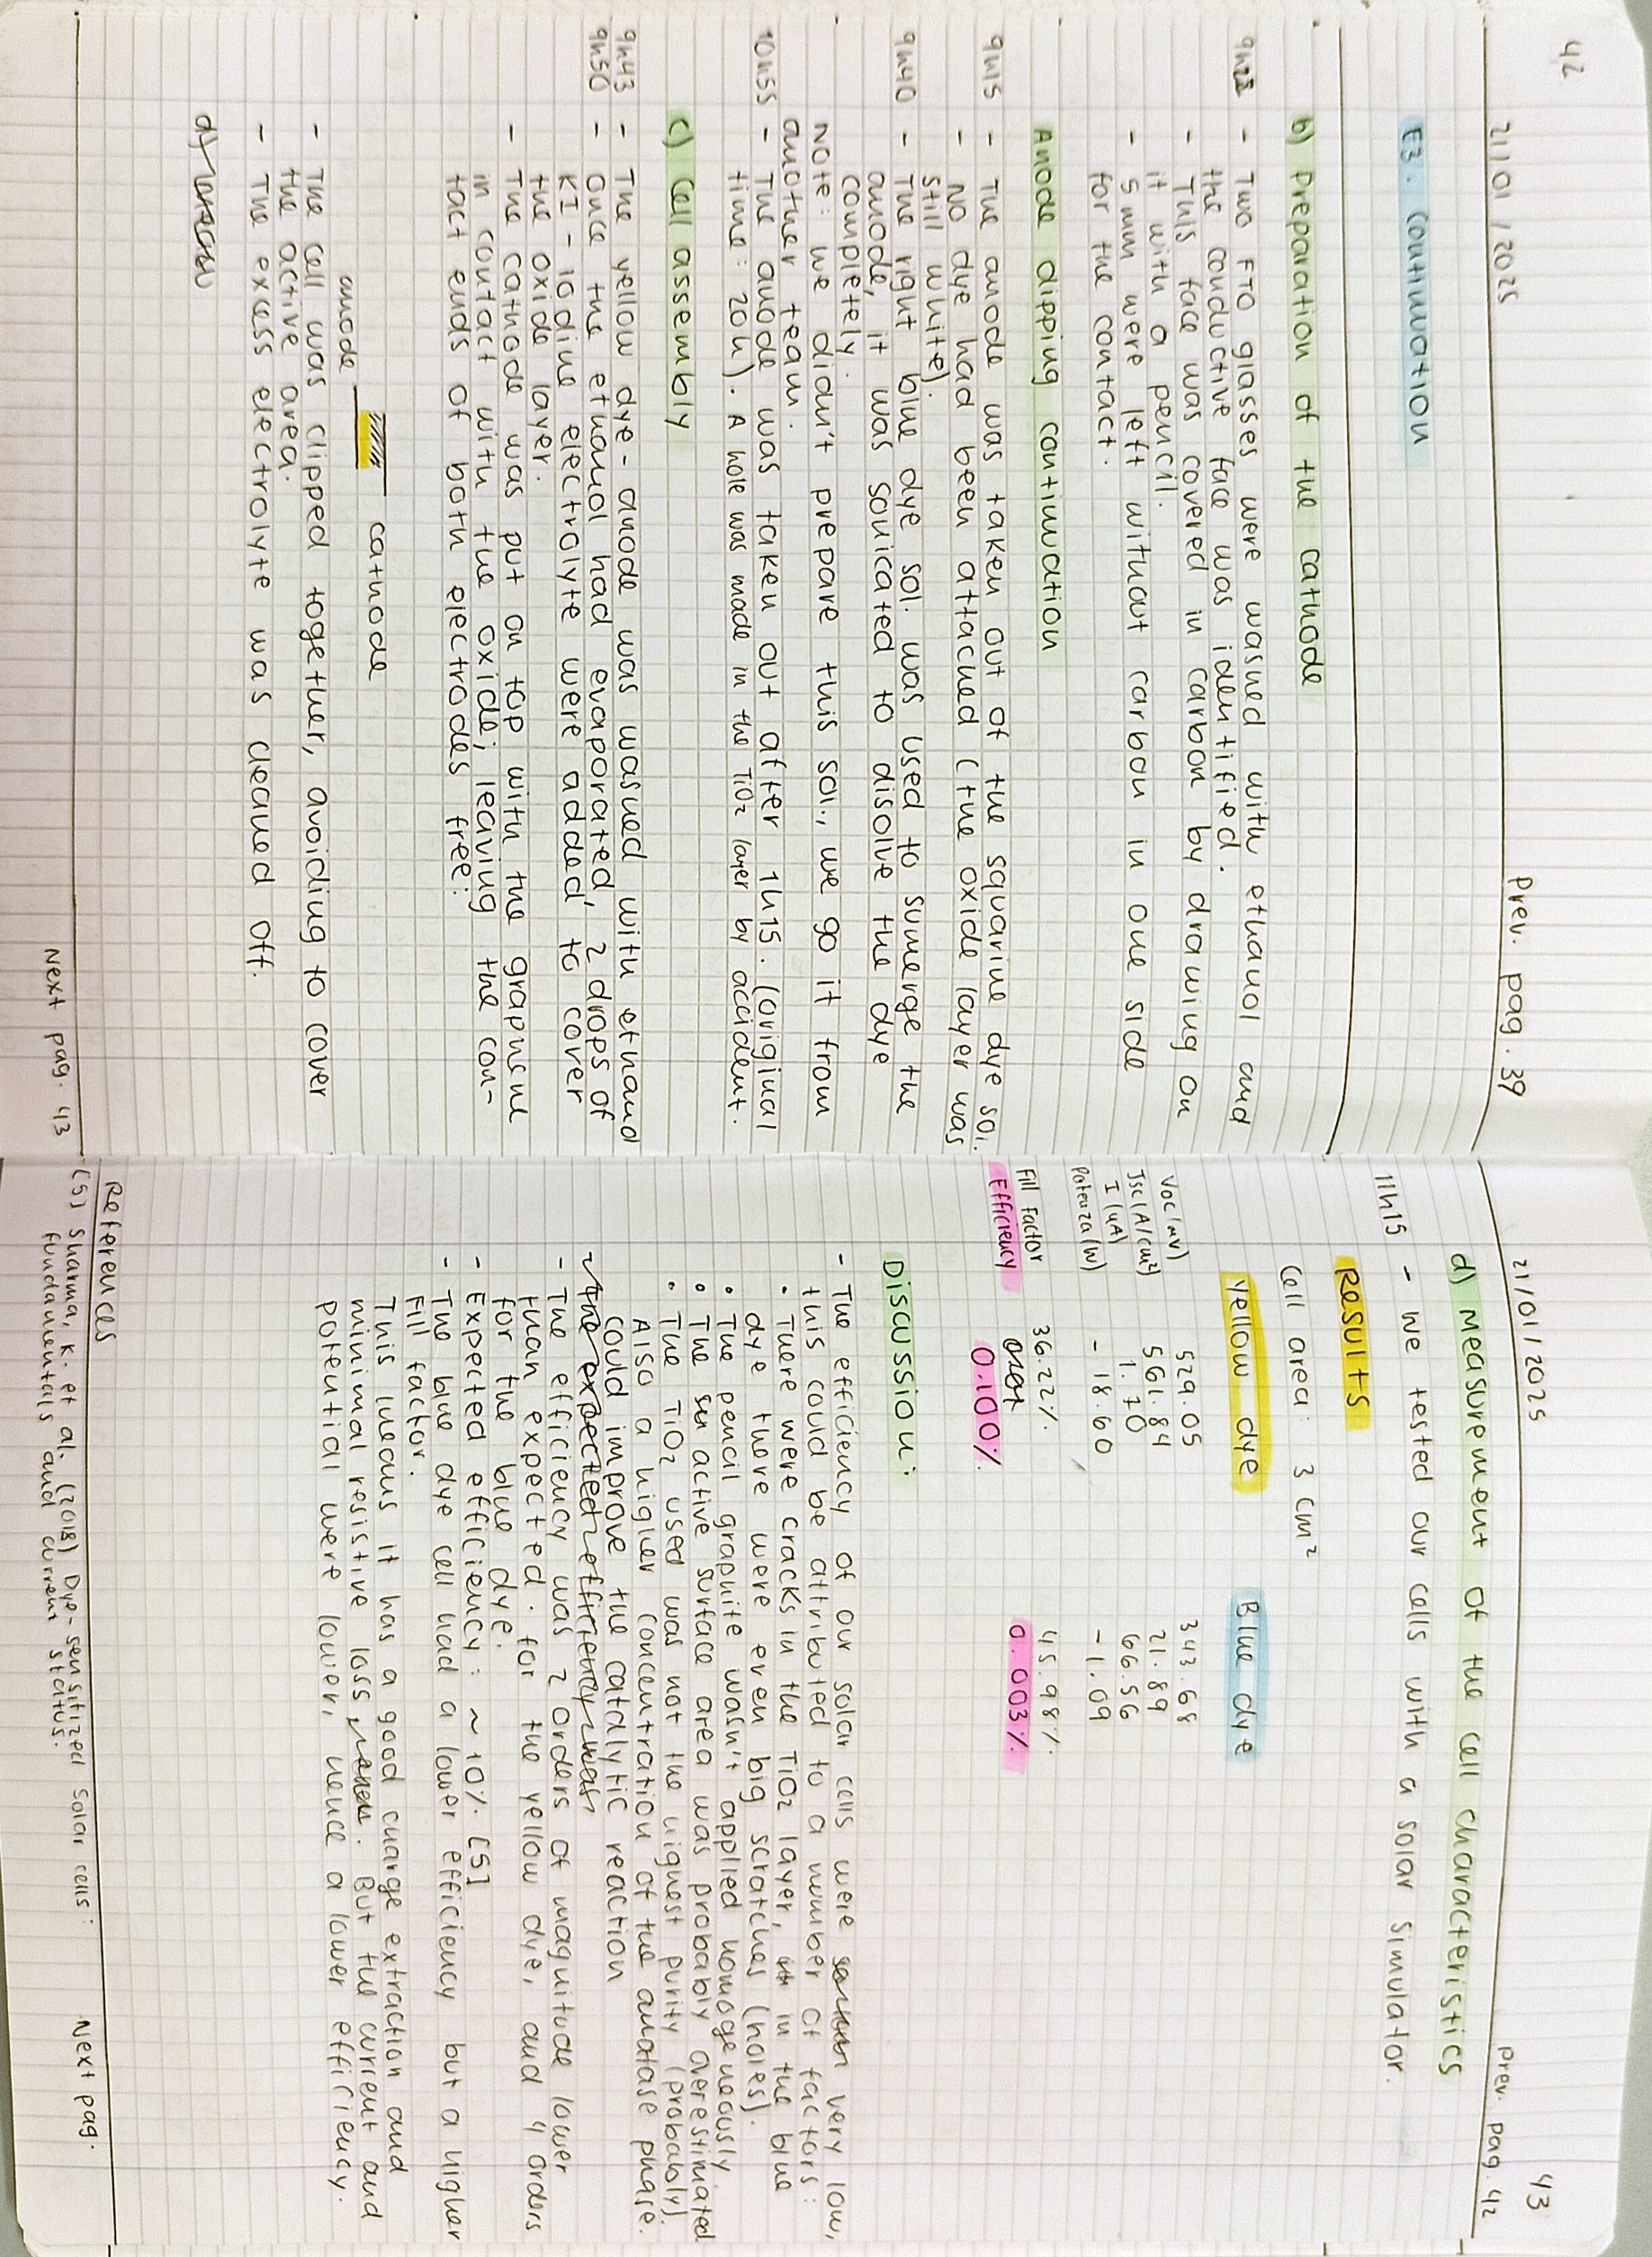 42
21/01/2025
Prev. pag. 39
E3. Continuation
b) Preparation of the cathode
9h28 - Two FTO glasses were washed with ethanol and
the conductive face was identified.
- This face was covered in carbon by drawing on
it with a pencil.
- 5 mm were left without carbon in one side
for the contact.
Anode dipping continuation
9h15 - The anode was taken out of the squarine dye sol.
- No dye had been attached (the oxide layer was
still white).
9h40 - The right blue dye sol. was used to sumerge the
anode, it was sonicated to disolve the dye
completely.
Note: we didn't prepare this sol., we go it from
another team.
10h55 - The anode was taken out after 1h15. (original
time: 20h). A hole was made in the TiO2 layer by accident.
c) Cell assembly
9h43 - The yellow dye-anode was washed with ethanol
9h50 - Once the ethanol had evaporated, 2 drops of
KI-Iodine electrolyte were added to cover
the oxide layer.
- The cathode was put on top with the graphene
in contact with the oxide; leaving the con-
tact ends of both electrodes free:
anode cathode
- The cell was clipped together, avoiding to cover
the active area.
- The excess electrolyte was cleaned off.
d)
Next pag. 43
43
21/01/2025
Prev. pag. 42
d) Measurement of the cell characteristics
11h15 - We tested our cells with a solar simulator.
Results
Cell area: 3 cm²
Yellow dye Blue dye
Voc (mV) 529.05 343.68
Jsc (A/cm²) 561.84 21.89
I (μA) 1.70 66.56
Potenza (W) -18.60 -1.09
Fill factor 36.22% 45.98%
Efficiency 0.100% 0.003%
Discussion:
- The efficiency of our solar cells were very low,
this could be attributed to a number of factors:
• There were cracks in the TiO2 layer, in the blue
dye there were even big scratches (holes).
• The pencil graphite wasn't applied homogeneously
• The active surface area was probably overestimated
• The TiO2 used was not the highest purity (probably).
Also a higher concentration of the anatase phase
could improve the catalytic reaction
the expected efficiency was
- The efficiency was 2 orders of magnitude lower
than expected. for the yellow dye, and 4 orders
for the blue dye.
- Expected efficiency: ~10%. [5]
- The blue dye cell had a lower efficiency but a higher
fill factor.
This means it has a good charge extraction and
minimal resistive loss. But the current and
potential were lower, hence a lower efficiency.
References
[5] Sharma, K. et al. (2018) Dye-sensitized solar cells:
fundamentals and current status.
Next pag.